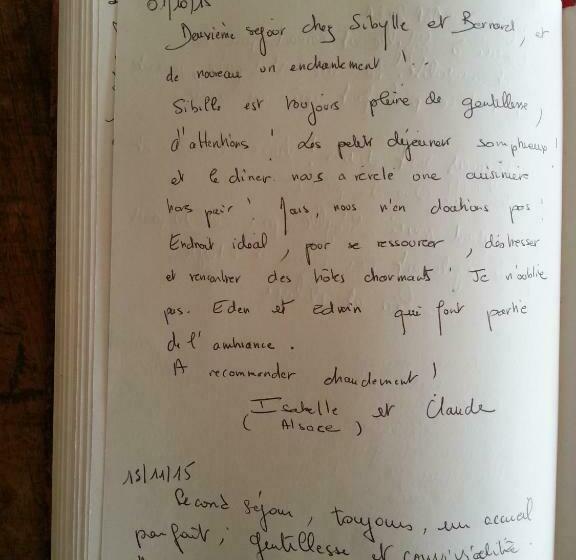 Deuxième séjour chez Sibylle et Bernard, et
de nouveau un enchantement !..
Sibille est toujours pleine de gentillesse,
d'attentions ! Les petits déjeuners somptueux !
et le dîner nous a révélé une cuisinière
hors pair ! Mais, nous n'en doutions pas !
Endroit idéal, pour se ressourcer, déstresser
et rencontrer des hôtes charmants ! Je n'oublie
pas. Eden et Edwin qui font partie
de l'ambiance.
A recommander chaudement !
Isabelle et Claude
(Alsace)
13/11/15
Second séjour, toujours, un accueil
parfait, gentillesse et convivialité